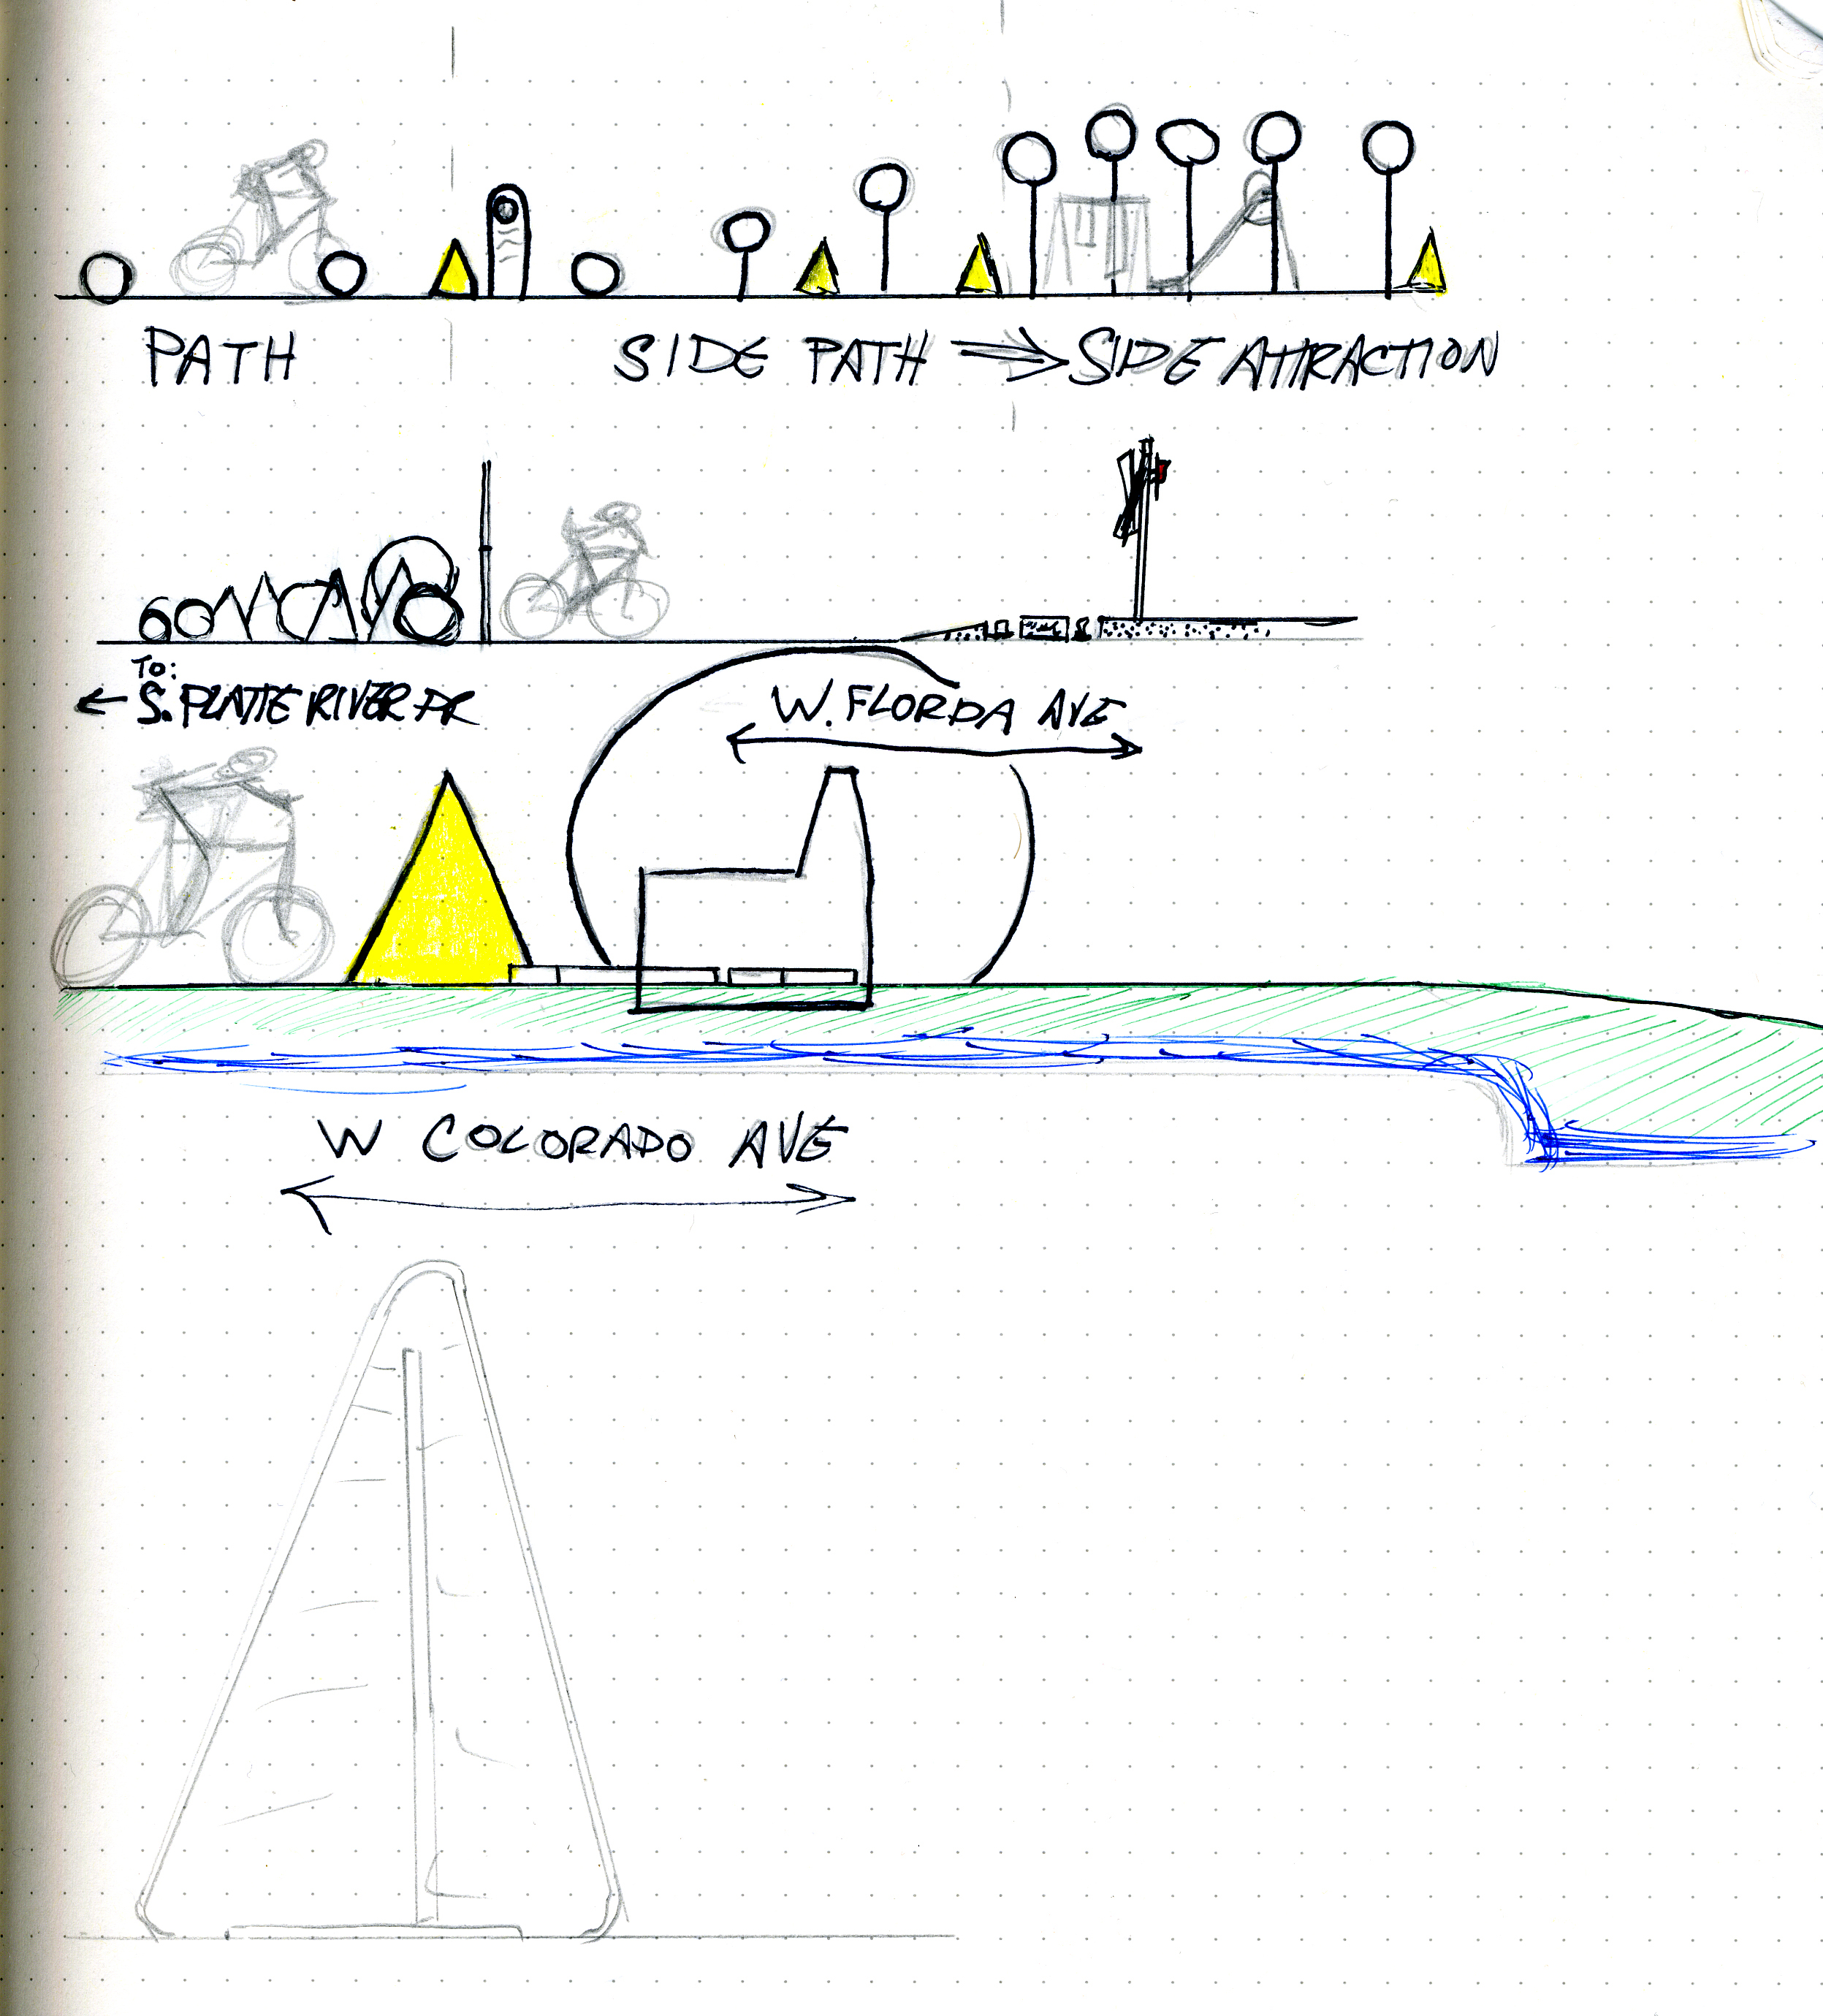 PATH
SIDE PATH ⇒ SIDE ATTRACTION
TO:
← S. PLATTE RIVER DR
W. FLORDA AVE
W COLORADO AVE